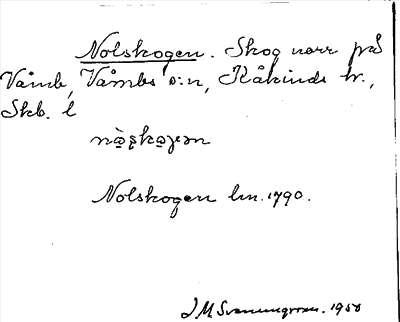 Nolskogen. Skog norr på
Våmb, Våmbs s:n, Kåkinds hd.,
Skb. l
Nolskogen lm. 1790.
J. M. Svenungsson. 1950